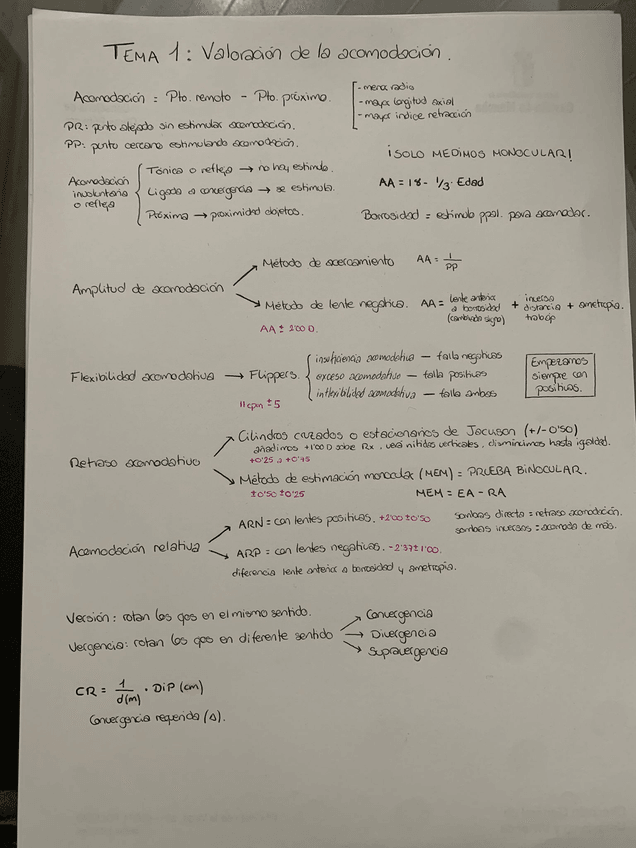 TEMA 1: Valoración de la acomodación.
Acomodación = Pto. remoto - Pto. próximo.
- menor radio
- mayor longitud axial
- mayor índice refracción
PR: punto alejado sin estimular acomodación.
PP: punto cercano estimulando acomodación.
¡SOLO MEDIMOS MONOCULAR!
Acomodación involuntaria o refleja
Tónica o refleja → no hay estímulo.
Ligada a convergencia → se estimula.
Próxima → proximidad objetos.
AA = 18 - 1/3 · Edad
Borrosidad = estímulo ppal. para acomodar.
Amplitud de acomodación
Método de acercamiento AA = 1/PP
Método de lente negativa. AA = lente anterior a borrosidad (cambiado signo) + inversa distancia trabajo + ametropía.
AA ± 2'00 D.
Flexibilidad acomodativa → Flippers.
insuficiencia acomodativa — falla negativas
exceso acomodativo — falla positivas
inflexibilidad acomodativa — falla ambas
Empezamos siempre con positivas.
11 cpm ± 5
Retraso acomodativo
Cilindros cruzados o estacionarios de Jacuson (+/- 0'50)
añadimos +1'00 D sobre Rx, verá nítidas verticales, disminuimos hasta igualdad.
+0'25 a +0'75
Método de estimación monocular (MEM) = PRUEBA BINOCULAR.
±0'50 ±0'25
MEM = EA - RA
sombras directa = retraso acomodación.
sombras inversas = acomoda de más.
Acomodación relativa
ARN = con lentes positivas. +2'00 ± 0'50
ARP = con lentes negativas. -2'37 ± 1'00.
diferencia lente anterior a borrosidad y ametropía.
Versión: rotan los ojos en el mismo sentido.
Vergencia: rotan los ojos en diferente sentido
Convergencia
Divergencia
Supravergencia
CR = 1/d(m) · DIP (cm)
Convergencia requerida (Δ).